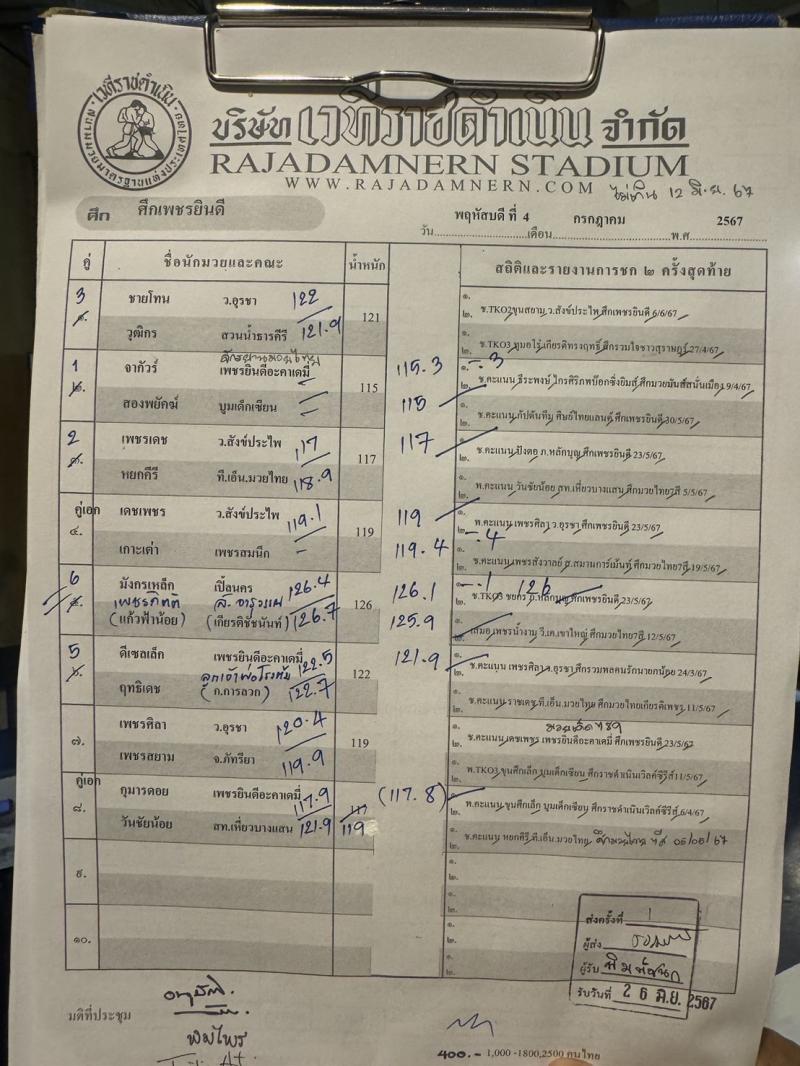 เวทีราชดำเนิน
บริษัท เวทีราชดำเนิน จำกัด
RAJADAMNERN STADIUM
WWW.RAJADAMNERN.COM
ไม่เกิน 12 มิ.ย. 67
ศึก ศึกเพชรยินดี
วัน พฤหัสบดี ที่ 4 เดือน กรกฎาคม พ.ศ 2567
คู่ ชื่อนักมวยและคณะ น้ำหนัก สถิติและรายงานการชก ๒ ครั้งสุดท้าย
3 ๑. ชายโทน ว.อุรชา 122 121 ๑.
๒. ช.TKO2 ขุนสยาม ว.สังข์ประไพ ศึกเพชรยินดี 6/6/67
วุฒิกร สวนน้ำธารคีรี 121.9 ๑.
๒. ช.TKO3 ศึกรวมใจชาวสุราษฎร์ 27/4/67
1 ๒. จากัวร์ เพชรยินดีอะคาเดมี่ 115 115.3 ๑. -.3
๒. ช.คะแนน ธีระพงษ์ 19/4/67
สองพยัคฆ์ บูมเด็กเซียน 115 ๑.
๒. ช.คะแนน กัปตันทีม ศิษย์ไทยแลนด์ ศึกเพชรยินดี 30/5/67
2 ๓. เพชรเดช ว.สังข์ประไพ 117 117 117 ๑.
๒. ช.คะแนน ปังตอ ภ.หลักบุญ ศึกเพชรยินดี 23/5/67
หยกคีรี ที.เอ็น.มวยไทย 118.9 ๑.
๒. พ.คะแนน วันชัยน้อย สท.เที่ยวบางแสน ศึกมวยไทย7สี 5/5/67
คู่เอก
๔. เดชเพชร ว.สังข์ประไพ 119.1 119 119 ๑.
๒. พ.คะแนน เพชรศิลา ว.อุรชา ศึกเพชรยินดี 23/5/67
เกาะเต่า เพชรสมนึก - 119.4 ๑. -.4
๒. ช.คะแนน เพชรสังวาลย์ ส.สมานการ์เม้นท์ ศึกมวยไทย7สี 19/5/67
6 ๕. มังกรเหล็ก เปี้ลนคร 126.4 126 126.1 ๑. -.1 126
๒. ช.TKO3 ศึกเพชรยินดี 23/5/67
เพชรกิตติ 126.7
(แก้วฟ้าน้อย) (เกียรติชัชนันท์) 125.9 ๑.
๒. เสมอ เพชรน้ำงาม วี.เค.เขาใหญ่ ศึกมวยไทย7สี 12/5/67
5 ๖. ดีเซลเล็ก เพชรยินดีอะคาเดมี่ 122.5 122 121.9 ๑.
๒. ช.คะแนน เพชรศิลา ว.อุรชา ศึกรวมพลคนรักนายกน้อย 24/3/67
ลูกเจ้าพ่อโรงต้ม
ฤทธิเดช (ก.การลวก) 122.7 ๑.
๒. ช.คะแนน ราชเดช ที.เอ็น.มวยไทย ศึกมวยไทยเกียรติเพชร 11/5/67
๗. เพชรศิลา ว.อุรชา 120.4 119 ๑.
๒. ช.คะแนน เดชเพชร เพชรยินดีอะคาเดมี่ ศึกเพชรยินดี 23/5/67
เพชรสยาม จ.ภัทรียา 119.9 ๑.
๒. พ.TKO3 ขุนศึกเล็ก บูมเด็กเซียน ศึกราชดำเนินเวิลด์ซีรีส์ 11/5/67
คู่เอก
๘. กุมารดอย เพชรยินดีอะคาเดมี่ 117.9 117 (117.8) ๑.
๒. พ.คะแนน ขุนศึกเล็ก บูมเด็กเซียน ศึกราชดำเนินเวิลด์ซีรีส์ 6/4/67
วันชัยน้อย สท.เที่ยวบางแสน 121.9 119 ๑.
๒. ช.คะแนน หยกคีรี ที.เอ็น.มวยไทย ศึกมวยไทย 7สี 05/05/67
๙. ๑.
๒.
๑.
๒.
๑๐. ๑.
๒.
๑.
๒.
ส่งครั้งที่ 1
ผู้ส่ง
ผู้รับ พิมพ์ชนก
รับวันที่ 26 มิ.ย. 2567
มติที่ประชุม อนุมัติ.
พิมไพร
400.- 1,000 -1800,2500 คนไทย